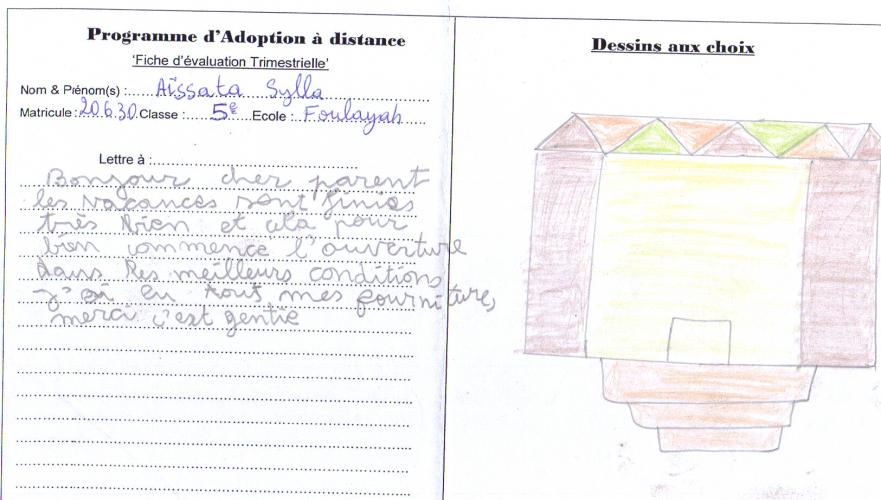 Programme d'Adoption à distance
'Fiche d'évaluation Trimestrielle'
Nom & Prénom(s) : Aïssata Sylla
Matricule : 20630 Classe : 5e Ecole : Foulayah
Lettre à :
Bonjour cher parent
les vacances sont finies
très bien et cela pour
bien commencé l'ouverture
dans les meilleurs conditions
j'ai eu tout mes fournitures
merci c'est gentie
Dessins aux choix